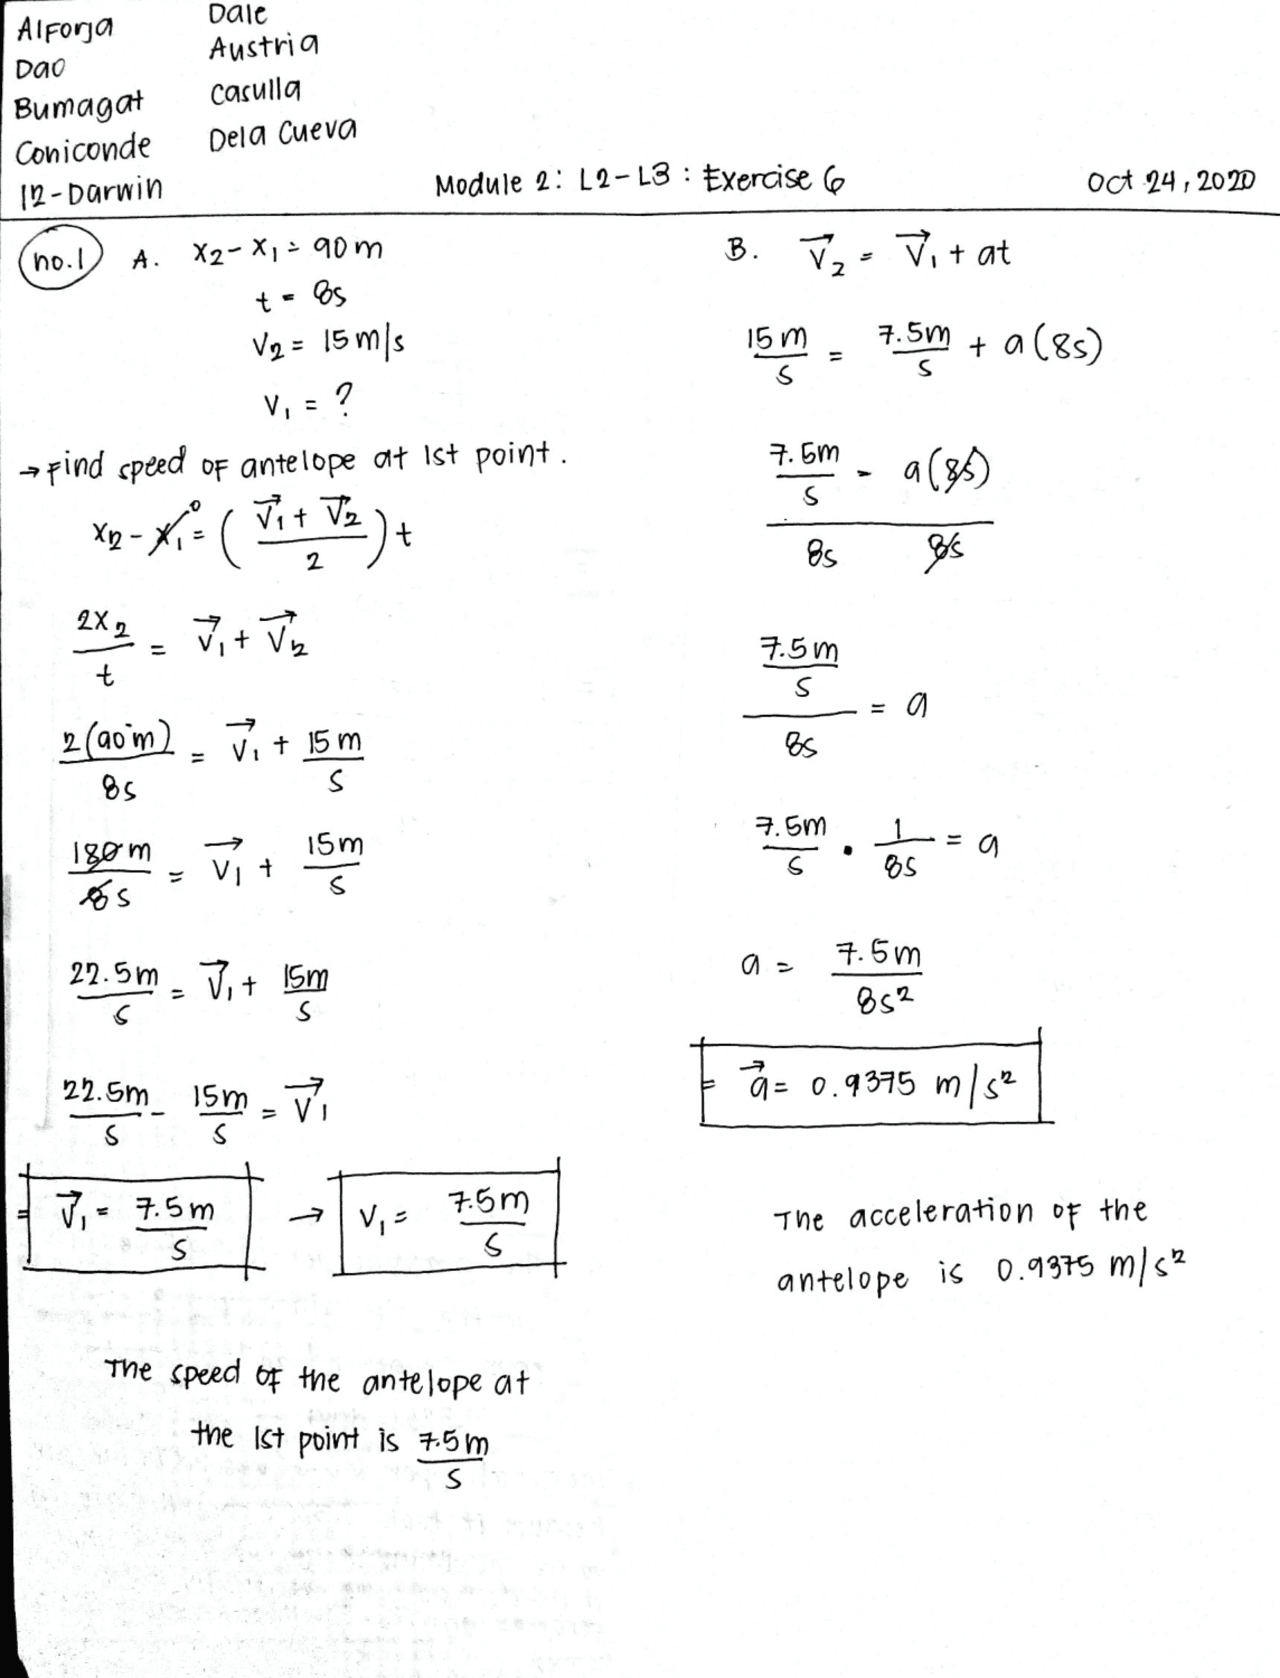 Alforja
Dao
Bumagat
Coniconde
12-Darwin
Dale
Austria
Casulla
Dela Cueva
Module 2: L2-L3 : Exercise 6
Oct 24, 2020
no.1
A. x₂ - x₁ = 90 m
t = 8s
V₂ = 15 m/s
V₁ = ?
→ Find speed of antelope at 1st point.
x₂ - x₁⁰ = ( (V⃗₁ + V⃗₂) / 2 ) t
2x₂ / t = V⃗₁ + V⃗₂
2(90 m) / 8s = V⃗₁ + 15 m / s
180 m / 8 s = V⃗₁ + 15 m / s
22.5 m / s = V⃗₁ + 15m / s
22.5m / s - 15m / s = V⃗₁
= V⃗₁ = 7.5 m / s → V₁ = 7.5 m / s
The speed of the antelope at
the 1st point is 7.5 m / s
B. V⃗₂ = V⃗₁ + at
15 m / s = 7.5m / s + a (8s)
7.5m / s = a (8s)
8s 8s
7.5 m / s / 8s = a
7.5m / s • 1 / 8s = a
a = 7.5 m / 8s²
= a⃗ = 0.9375 m/s²
The acceleration of the
antelope is 0.9375 m/s²